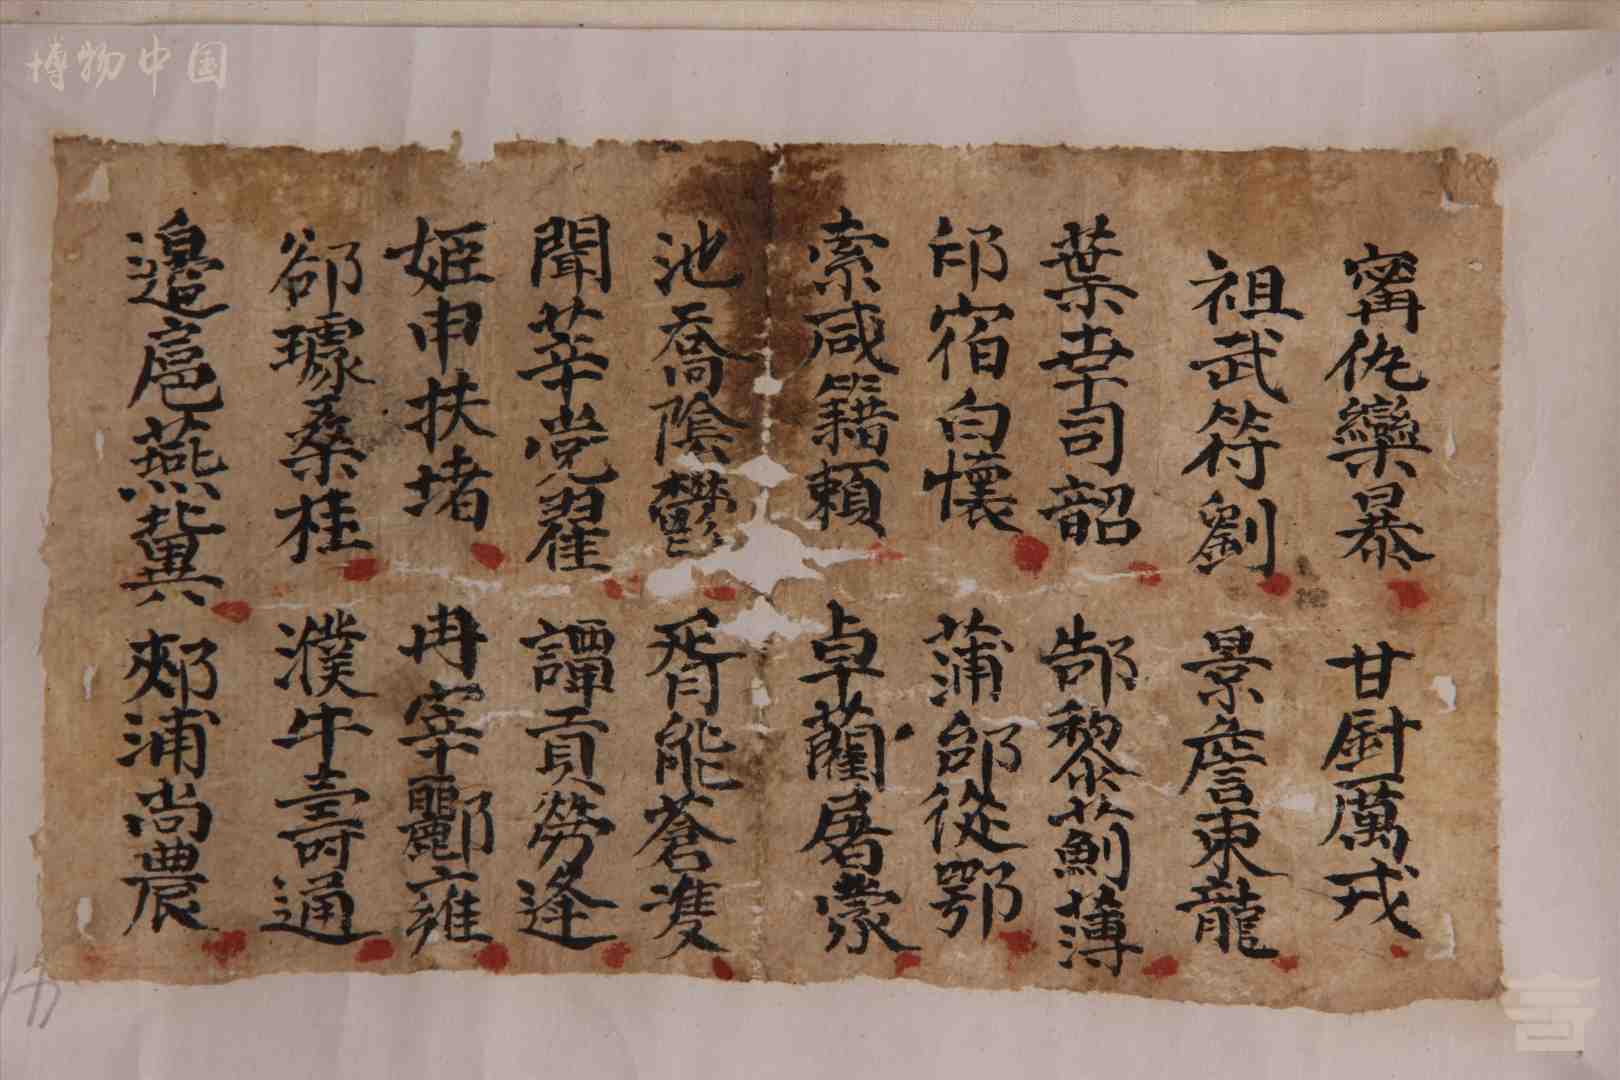 博物中国
甯仇欒暴 甘鈄厲戎
祖武符劉 景詹束龍
葉幸司韶 郜黎薊薄
印宿白懷 蒲邰從鄂
索咸籍頼 卓藺屠蒙
池喬陰鬱 胥能蒼雙
聞莘党翟 譚貢勞逄
姬申扶堵 冉宰酈雍
郤璩桑桂 濮牛壽通
邊扈燕冀 郟浦尚農